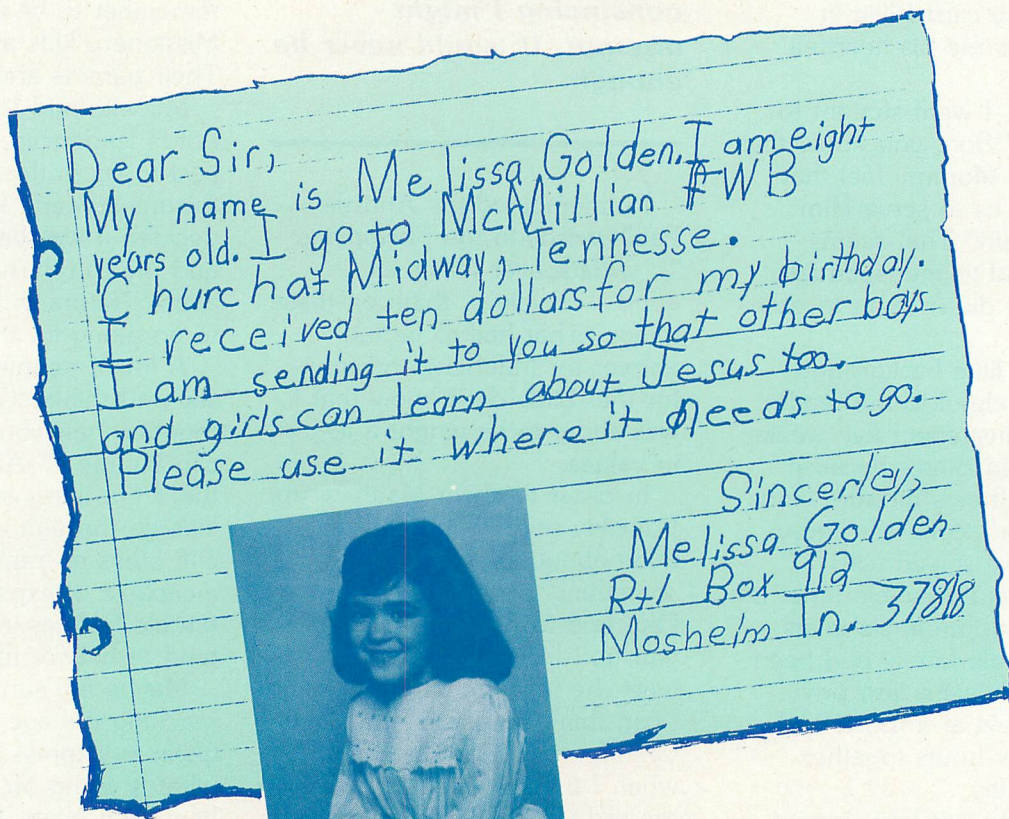 Dear Sir,
My name is Melissa Golden. I am eight
years old. I go to McMillian FWB
Church at Midway, Tennesse.
I received ten dollars for my birthday.
I am sending it to you so that other boys
and girls can learn about Jesus too.
Please use it where it needs to go.
Sincerley,
Melissa Golden
Rt1 Box 912
Mosheim Tn. 37818